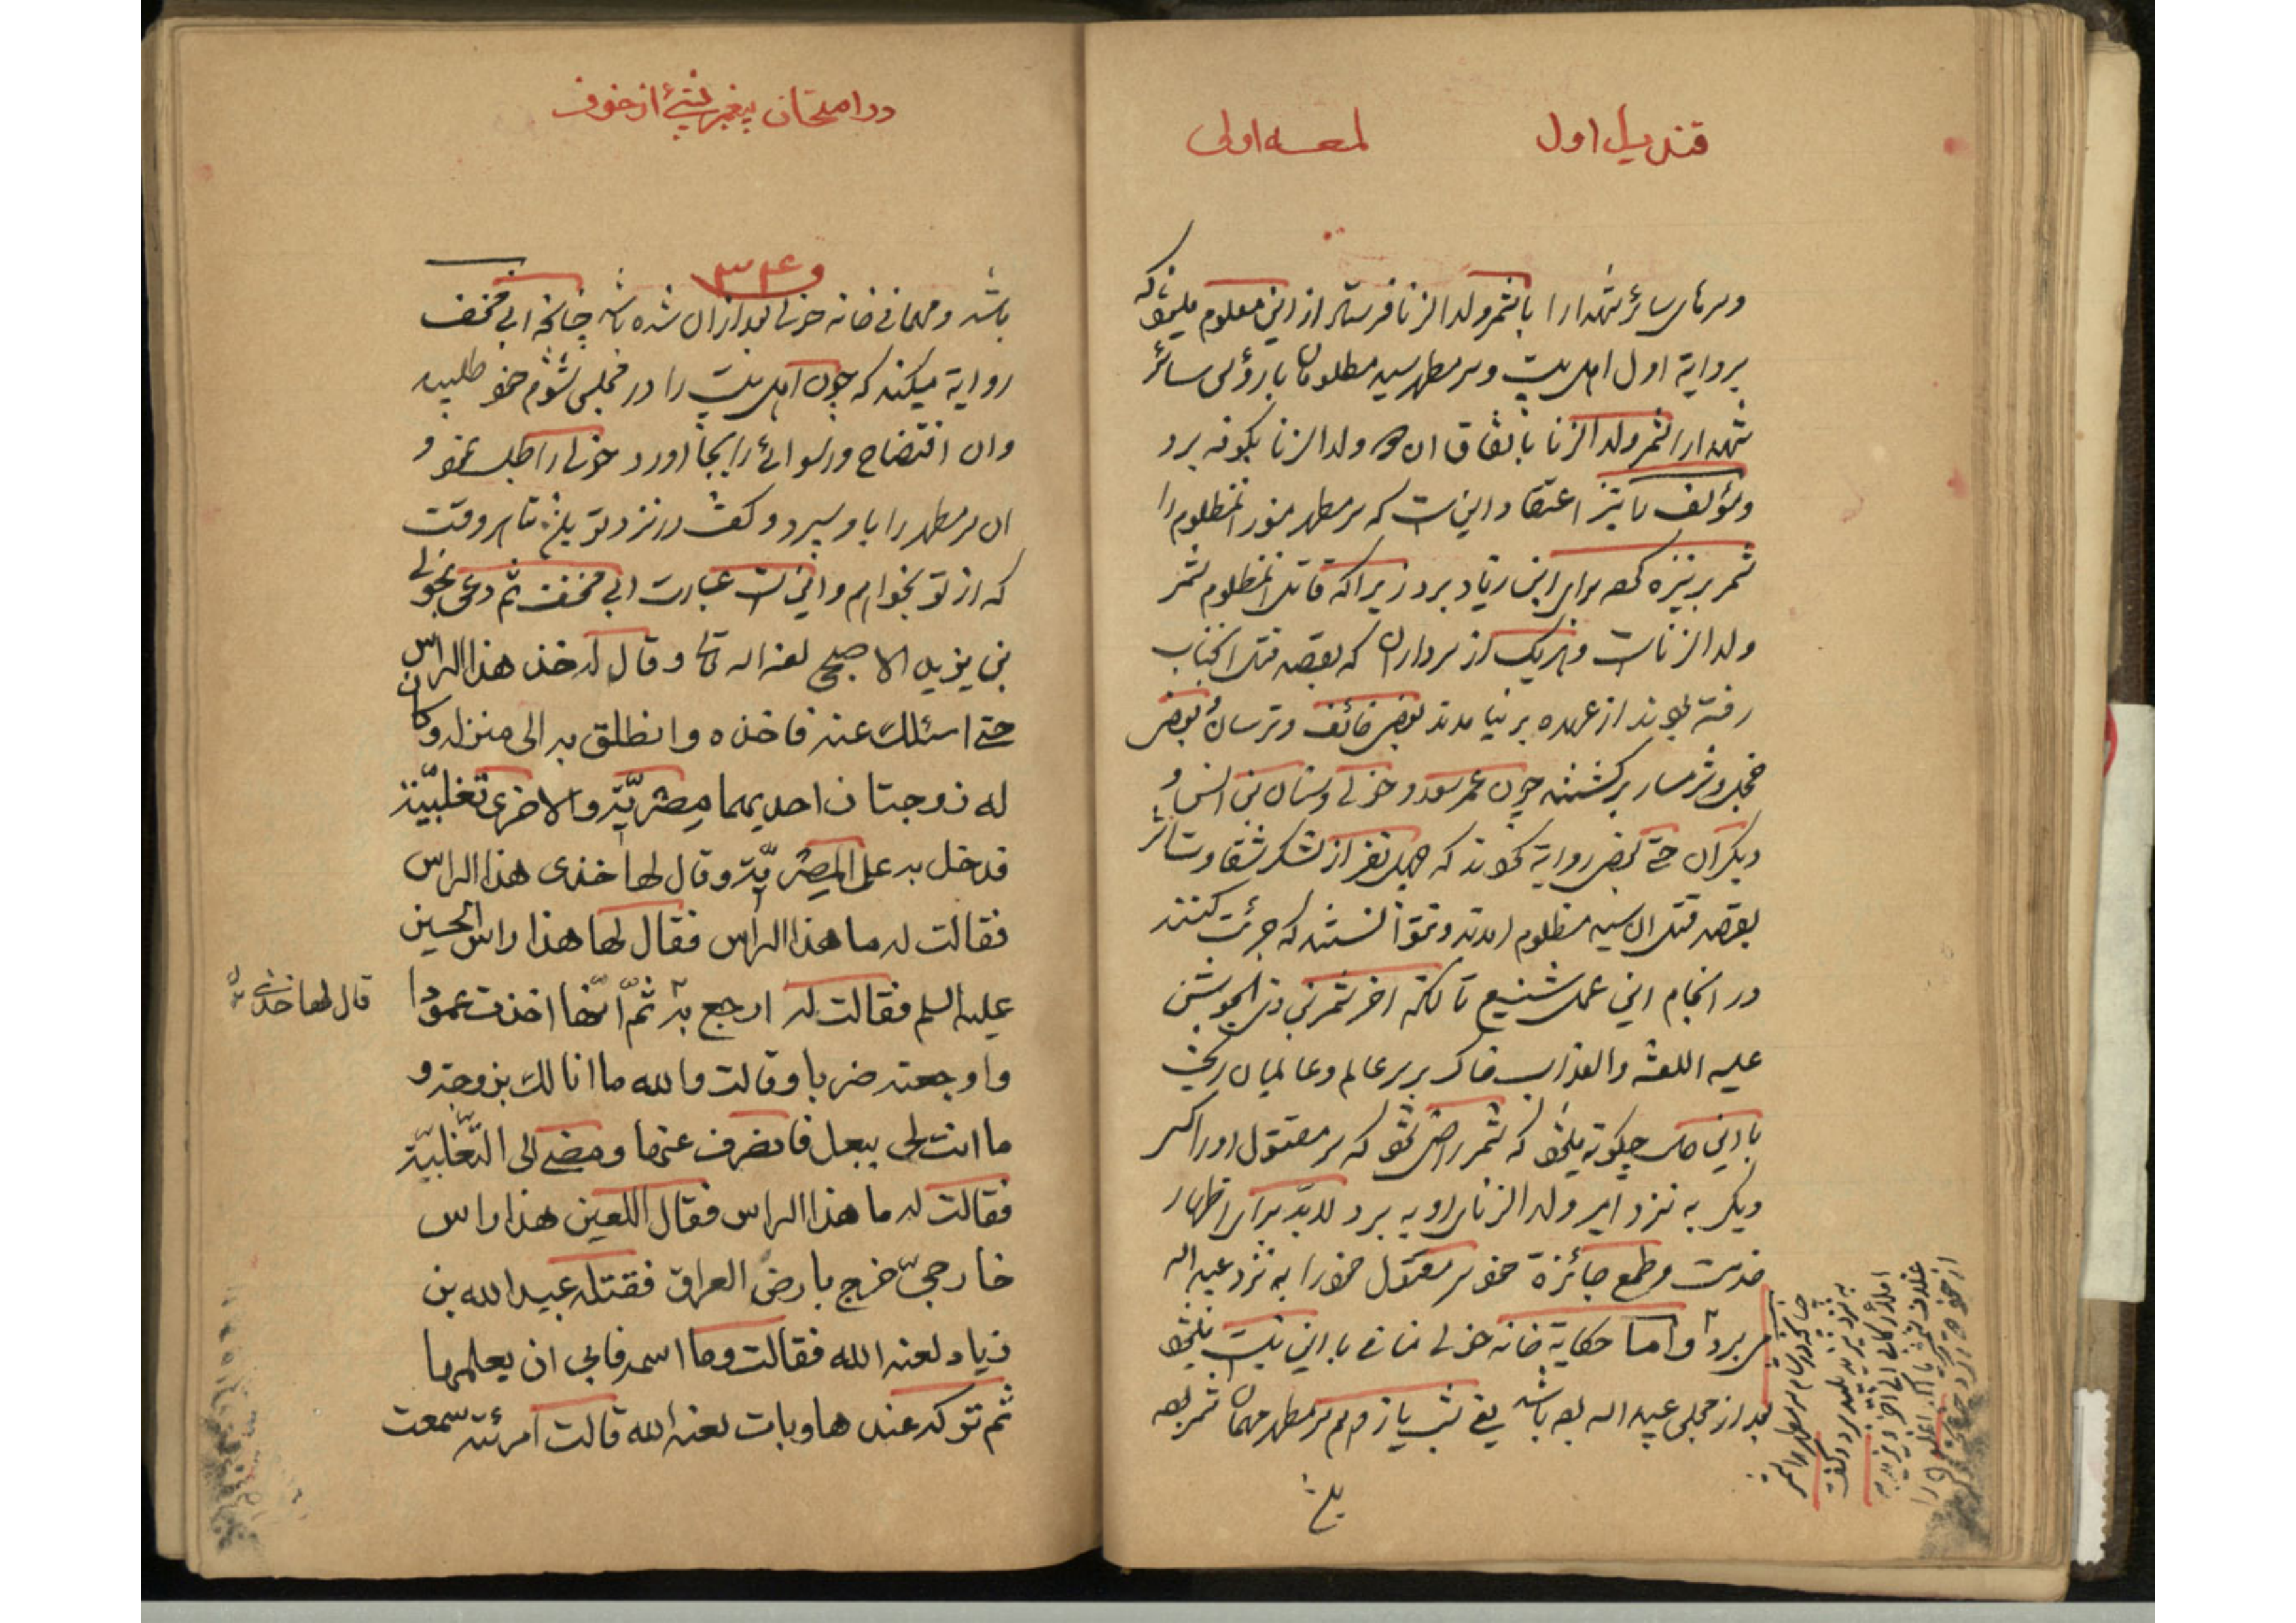 قندیل اول
لمعه اولی
وسرهای سائر شهدا را با شمر ولد الزنا فرستاد از این معلوم میشود که
بروایة اول اهل بیت وسر مطهر سید مظلومان با رؤس سائر
شهدا را شمر ولد الزنا باتفاق ان ولد الزنا بکوفه برد
ومؤلف را نیز اعتقاد این است که سر مطهر منور انمظلوم را
شمر بر نیزه کرده برای ابن زیاد برد زیرا که قاتل انمظلوم شمر
ولد الزناست وهریک از سرداران که بقصد قتل انجناب
رفته بودند از عهده بر نیامدند بعضی خائف وترسان و بعضی
خجل وشرمسار برکشتند چون عمر سعد و خولی وسنان بن انس و
دیکران حتی بعضی روایة کردند که چهل نفر از لشکر شقاوت اثر
بقصد قتل ان سید مظلوم امدند ونتوانستند که جرئت کنند
در انجام این عمل شنیع تا انکه اخر شمر بن ذی الجوشن
علیه اللعنه والعذاب خاک بر سر عالم وعالمیان ریخت
با این حال چکونه میشود که شمر راضی شود که سر مقتول او را کس
دیکر به نزد امیر ولد الزنای او به برد لابد برای اظهار
خدمت وطمع جائزة خود سر مقتول خود را به نزد عبید اله
می برد و اما حکایة خانه خولی منافی با این نیست میشود
بعد از مجلس عبید اله بوده باشد یعنی شب یازدهم سر مطهر مهمان شمر بوده
در امتحان پیغمبر نیئ از خوف
و۳۴
باشد ومهمانی خانه خولی بعد از ان شده باشد چنانچه ابی مخنف
روایة میکند که چون اهل بیت را در مجلس شوم خود طلبید
وان افتضاح ورسوائی را بجا اورد خولی را طلب نمود و
ان سر مطهر را باو سپرد و کفت در نزد تو باشد تا هر وقت
که از تو بخواهم واین است عبارت ابی مخنف ثم دعی بخولی
بن یزید الاصبحی لعنه اله تعالی وقال له خذ هذا الراس
حتی اسئلک عنه فاخذه وانطلق به الی منزله وکان
له زوجتان احدیهما مضریّة والاخری تغلبیّة
فدخل به علی المضریّة وقال لها خذی هذا الراس
فقالت له ما هذا الراس فقال لها هذا راس الحسین
علیه السلم فقالت له ارجع به ثمّ انّها اخذت عمودا
واوجعته ضربا وقالت والله ما انا لک بزوجة و
ما انت لی ببعل فانصرف عنها ومضی الی التّغلبیّة
فقالت له ما هذا الراس فقال اللعین هذا راس
خارجیّ خرج بارض العراق فقتله عبید الله بن
زیاد لعنه الله فقالت وما اسمه فابی ان یعلمها
ثم ترکه عندها وبات لعنه الله قالت امرئته سمعت